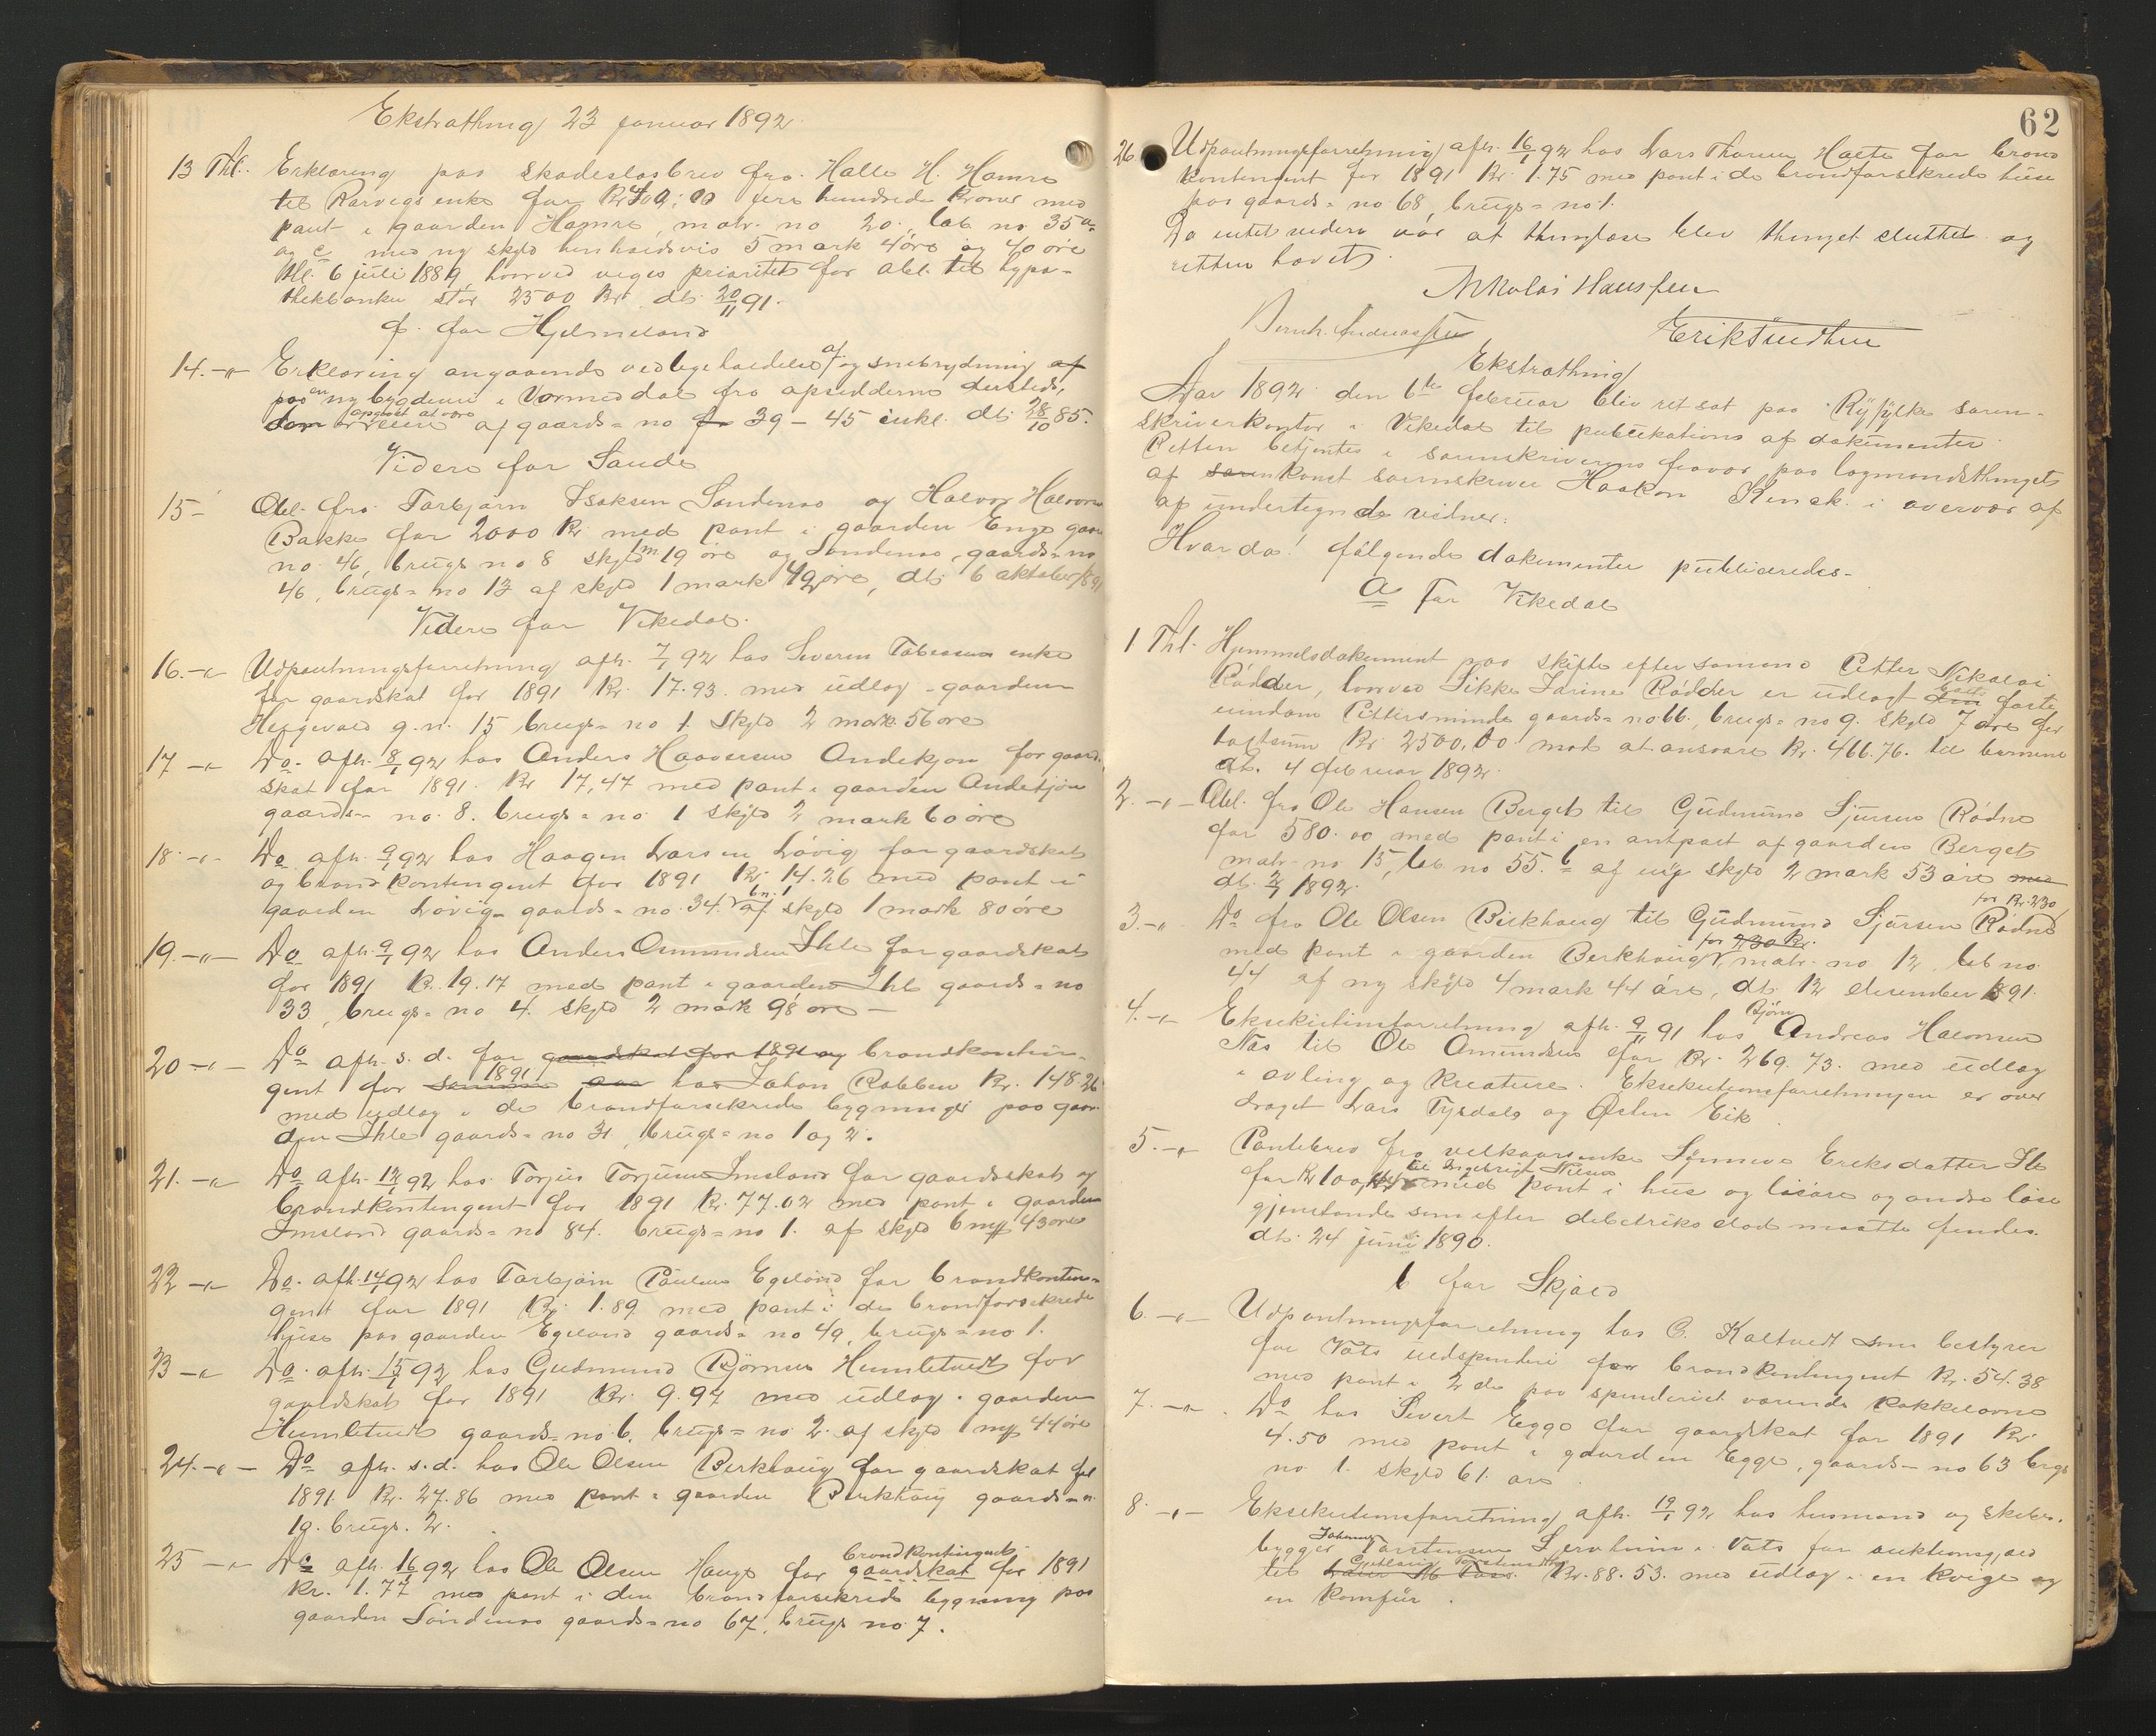 Ekstrathing 23 januar 1892.
13 Thl. Erklæring paa skadesløsbrev fra Halle H. Hamre
til Rarvegs enke for Kr 400,00 fire hundrede Kroner med
pant i gaarden Hamre, matr. no 20, løb. no 35 a
og c med ny skyld henholdsvis 5 mark 4 øre og 40 øre
thl. 6 juli 1889, hvorved viges prioritet for obl. til hypo-
thekbanken stor 2500 Kr. dt. 20/11 91.
f. for Hjelmeland
14. -"- Erklæring angaaende vedligeholdelse af og snebrydning af
paa en ny bygdevei i Vormedal fra opsidderne dersteds,
som opgivet at være eiere af gaards-no fr 39 - 45 inkl. dt. 28/10 85.
Videre for Saude
15 - Obl. fra Torbjørn Isaksen Søndenaa og Halvor Halvorsen
Bakke for 2000 Kr. med pant i gaarden Enge gaards
no 46, brugs no 8 skyld m 19 øre og Søndenaa, gaards-no
46, brugs-no 13 af skyld 1 mark 42 øre, dt. 6 oktober 1891
Videre for Vikedal.
16. -"- Udpantningsforretning afh. 7/1 92 hos Severin Tobiassens enke
for gaardskat for 1891 Kr. 17.93 med udlæg i gaarden
g.n. 15 brugs-no 1. Skyld 2 mark 56 øre
17 -"- Do. afh. 8/1 92 hos Anders Haaversen Ondekjøn for gaard-
skat for 1891. Kr 17,47 med pant i gaarden Ondekjøn
gaards-no. 8. brugs-no 1 skyld 2 mark 60 øre
18. -"- Do afh. 9/1 92 hos Haagen Larsen Løvig for gaardskat
og brandkontingent for 1891 Kr. 14.26 med pant i
gaarden Løvig gaards-no. 34. bn. 1 af skyld 1 mark 80 øre
19. -"- Do afh. 9/1 92 hos Anders Osmundsen Ihle for gaardskat
for 1891 Kr. 19.17 med pant i gaarden Ihle gaards-no
33, brugs-no 4. skyld 2 mark 98 øre -
20 -"- Do afh. s. d. for gaardskat for 1891 og brandkontin-
gent for samme 1891 hos Johan Rabben Kr. 148.26
med udlæg i de brandforsikrede bygninger paa gaar-
den Ihle gaards-no 31, brugs-no 1 og 2.
21. -"- Do afh. 12/1 92 hos Torjus Torjusen Imsland for gaardskat og
brandkontingent for 1891 Kr. 77.02 med pant i gaarden
Imsland gaards-no 84. brugs-no 1. af skyld 6 mk 43 øre
22 -"- Do. afh. 14/1 92 hos Torbjørn Paulsen Egeland for brandkontin-
gent for 1891 Kr. 1.89 med pant i de brandforsikrede
huse paa gaarden Egeland gaards-no 49, brugs-no 1.
23 -"- Do. afh. 15/1 92 hos Gudmund Bjørnsen Humletvedt for
gaardskat for 1891 Kr. 9.97 med udlæg i gaarden
Humletvedt gaards-no 6, brugs-no 2. af skyld 1 mk 44 øre
24. -"- Do afh. s. d. hos Ole Olsen Birkhaug for gaardskat for
1891 Kr. 27.86 med pant i gaarden Birkhaug gaards-n.
19. brugs. 2.
25 -"- Do afh. 16/1 92 hos Ole Olsen Hauge for gaardskat brandkontingent for 1891
Kr. 1.77 med pant i den brandforsikrede bygning paa
gaarden Søndenaa gaards-no 67, brugs no 7.
62
26 Udpantningsforretning afh. 16/1 92 hos Lars Thorsen for brand
kontingent for 1891 Kr. 1.75 med pant i de brandforsikrede huse
paa gaards-no 68, brugs-no 1.
Da intet videre var at thinglæse blev thinget sluttet og
retten hævet.
Nikolai Hanssen
Bernh. Andreassen Erik Lindtner
Ekstrathing
Aar 1892 den 6te februar blev ret sat paa Ryfylke soren-
skriverkontor i Vikedal til publikation af dokumenter.
Retten betjentes i sorenskriverens fravær paa lagmandsthinget
af soren konst sorenskriver Haakon Kinck i overvær af
af undertegnede vidner:
Hvorda! følgende dokumenter publiceredes -
a for Vikedal
1 Thl. Hjemmelsdokument paa skifte efter sømand Petter Nikolai
Rødder, hvorved Sikke Tarine Rødder er udlagt den faste
eiendom Pettersminde gaards-no 66, brugs-no 9. skyld 7 øre for
takstsum Kr. 2500,00 mod at ansvare Kr. 466.76. til børnene
dt. 4 februar 1892.
2. -"- Obl. fra Ole Hansen Berget til Gudmund Sjursen Rødne
for 580.00 med pant i en antpart af gaarden Berget
matr-no 15, løb no 55.b af ny skyld 2 mark 53 øre med
dt. 2/1 1892.
3. -"- Do fra Ole Olsen Birkhaug til Gudmund Sjursen Rødne for Kr. 230
med pant i gaarden Berkhaug for 230 Kr. matr. no 12 løb no
44 af ny skyld 4 mark 44 øre, dt. 12 desember 1891.
4. -"- Eksekutionsforretning afh. 9/11 91 hos Bjørn Andreas Halvorsen
Næs til Ole Amundsen for Kr. 269.73. med udlæg
i avling og kreature. Eksekutionsforretningen er over
draget Lars Tysdale og Østen Eik.
5. -"- Pantebrev fra velkaarsenke Synneve Eriksdatter Ihle
for Kr 100,00 til Ingebrigt Nilsen med pant i hus og løsøre og andre løse
gjenstande som efter debetriks død maatte findes.
dt. 24 juni 1890.
b for Skjold
6. -"- Udpantningsforretning hos G. Kaltvedt som bestyrer
for Vats uldspinderi for brandkontingent Kr. 54.38
med pant i 2 de paa spinderiet værende kakkelovne
7. -"- Do hos Sivert Egge for gaardskat for 1891 Kr.
4.50 med pant i gaarden Egge, gaards-no 63 brgs
no 1. skyld 61 øre.
8. -"- Eksekutionsforretning afh. 19/1 92 hos husmand og skibs-
bygger Johannes Torstensen i Vats for auktionsgjæld
til Kr. 88.53. med udlæg i en kvige og
en komfur.